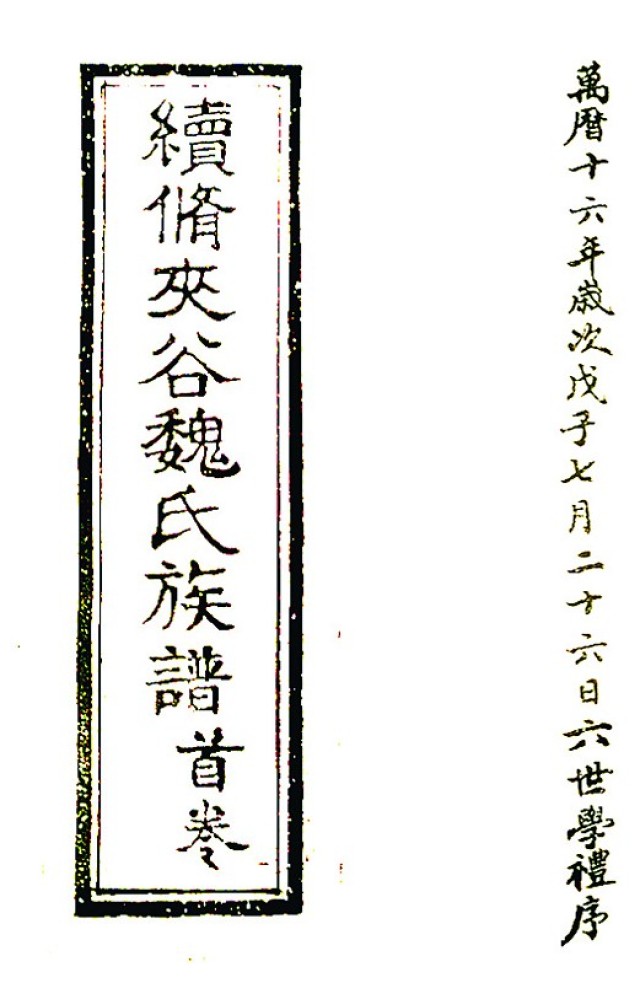 萬曆十六年歲次戊子七月二十六日六世學禮序
續脩夾谷魏氏族譜首卷